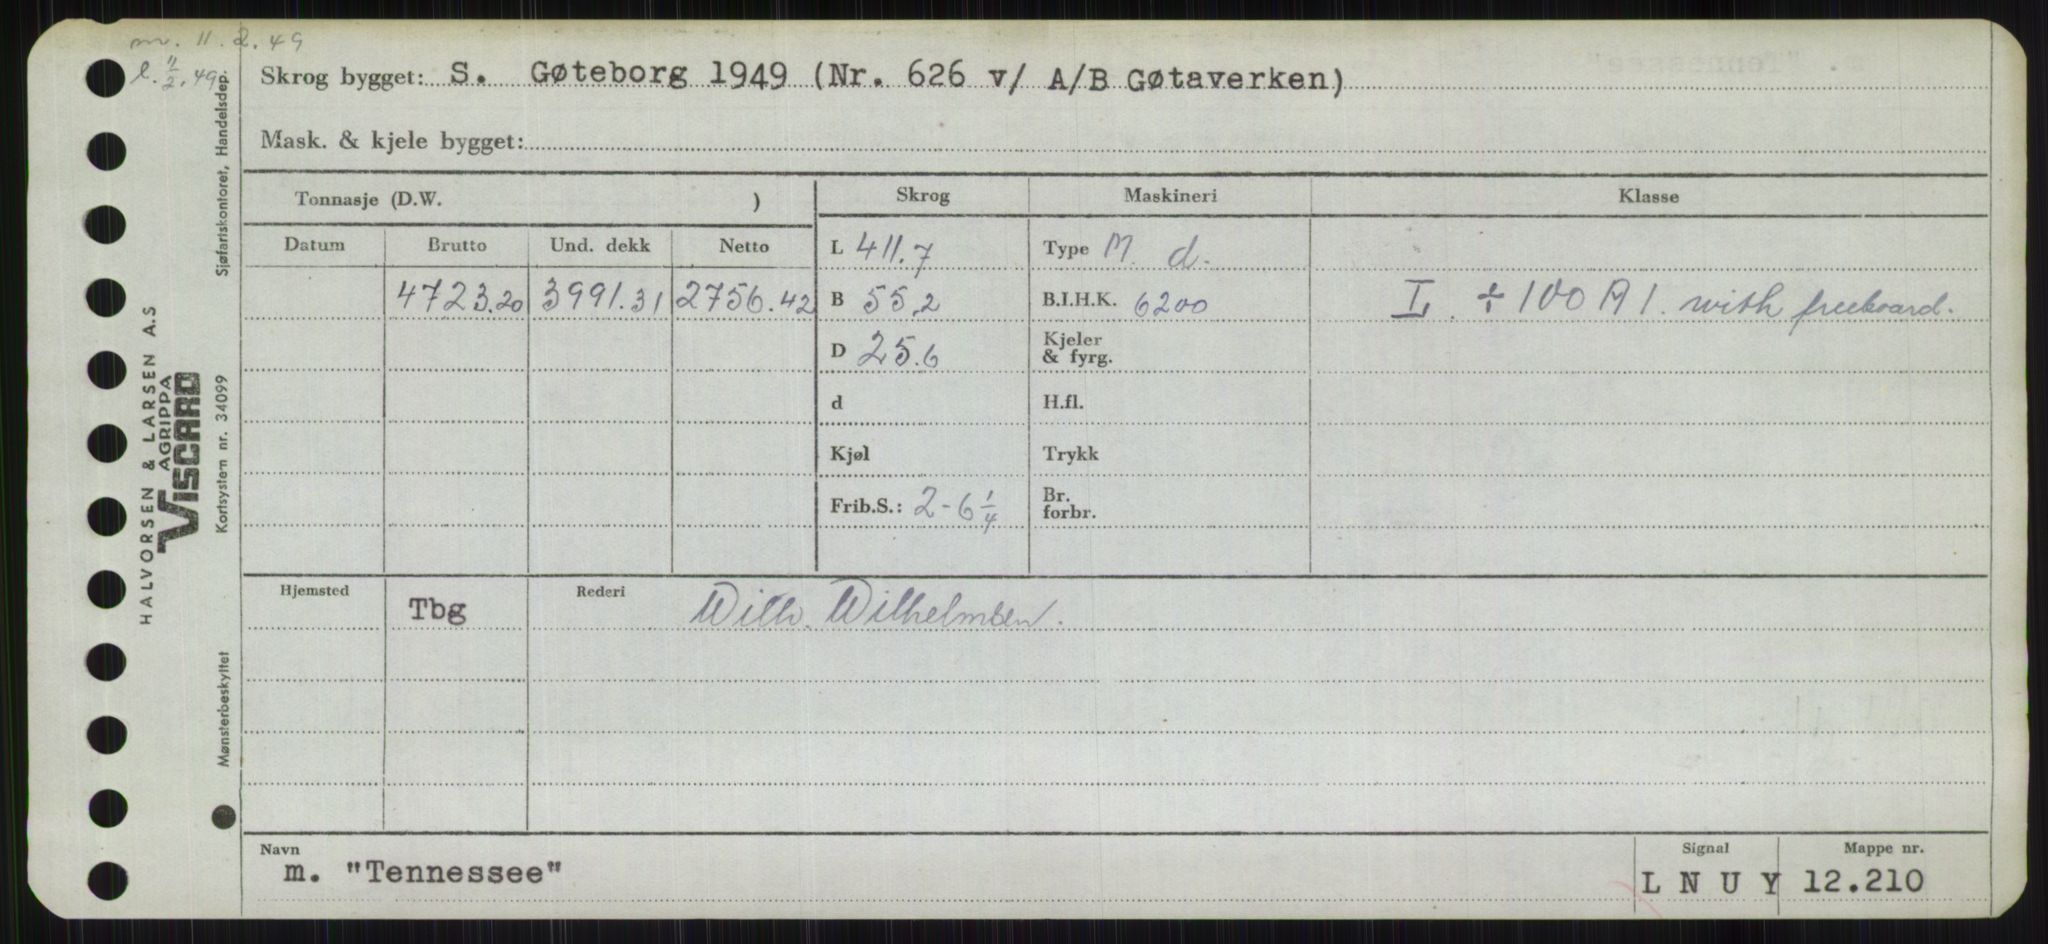 m. 11.2.49
l. 11/2.49
Skrog bygget: S. Gøteborg 1949 (Nr. 626 v/ A/B Gøtaverken)
Mask. & kjele bygget:
Tonnasje (D.W. )
Skrog Maskineri Klasse
Datum Brutto Und. dekk Netto
L 411.7 Type M d.
4723.20 3991.31 2756.42 B 55.2 B.I.H.K. 6200 L. ÷ 100 A 1. with freeboard.
D 25.6 Kjeler
& fyrg.
d H.fl.
Kjøl Trykk
Frib.S.: 2-6 1/4 Br.
forbr.
Hjemsted Tbg Rederi Wilh. Wilhelmsen.
Navn Signal Mappe nr.
m. "Tennessee" L N U Y 12.210
Sjøfartskontoret, Handelsdep.
HALVORSEN & LARSEN A.S
AGRIPPA
VISCARD
Kortsystem nr. 34099
Mønsterbeskyttet